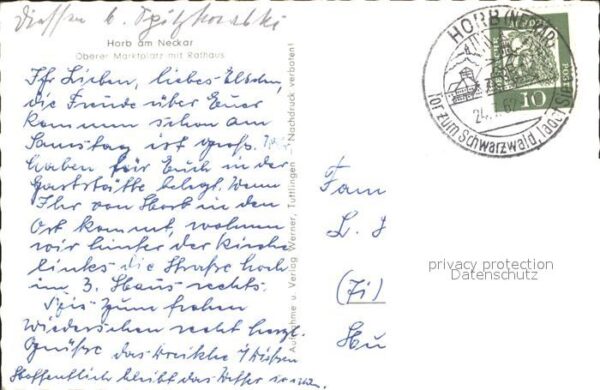 Horb am Neckar
Oberer Marktplatz mit Rathaus
Ihr Lieben, liebes
die Freude über Euer
kommen schon am
Samstag ist groß.
haben für Euch in der
Gaststätte belegt. Wenn
Ihr von Horb in den
Ort kommt, wohnen
wir hinter der Kirche
links die Straße hoch
im 3. Haus rechts.
Bis zum frohen
Wiedersehen recht herzl.
Grüße
Hoffentlich bleibt das Wetter
Aufnahme u. Verlag Werner, Tuttlingen Nachdruck verboten!
HORB (NECKAR)
24. 62
Tor zum Schwarzwald,
DEUTSCHE BUNDESPOST
10
Fam
L. J
(7i)
privacy protection
Datenschutz